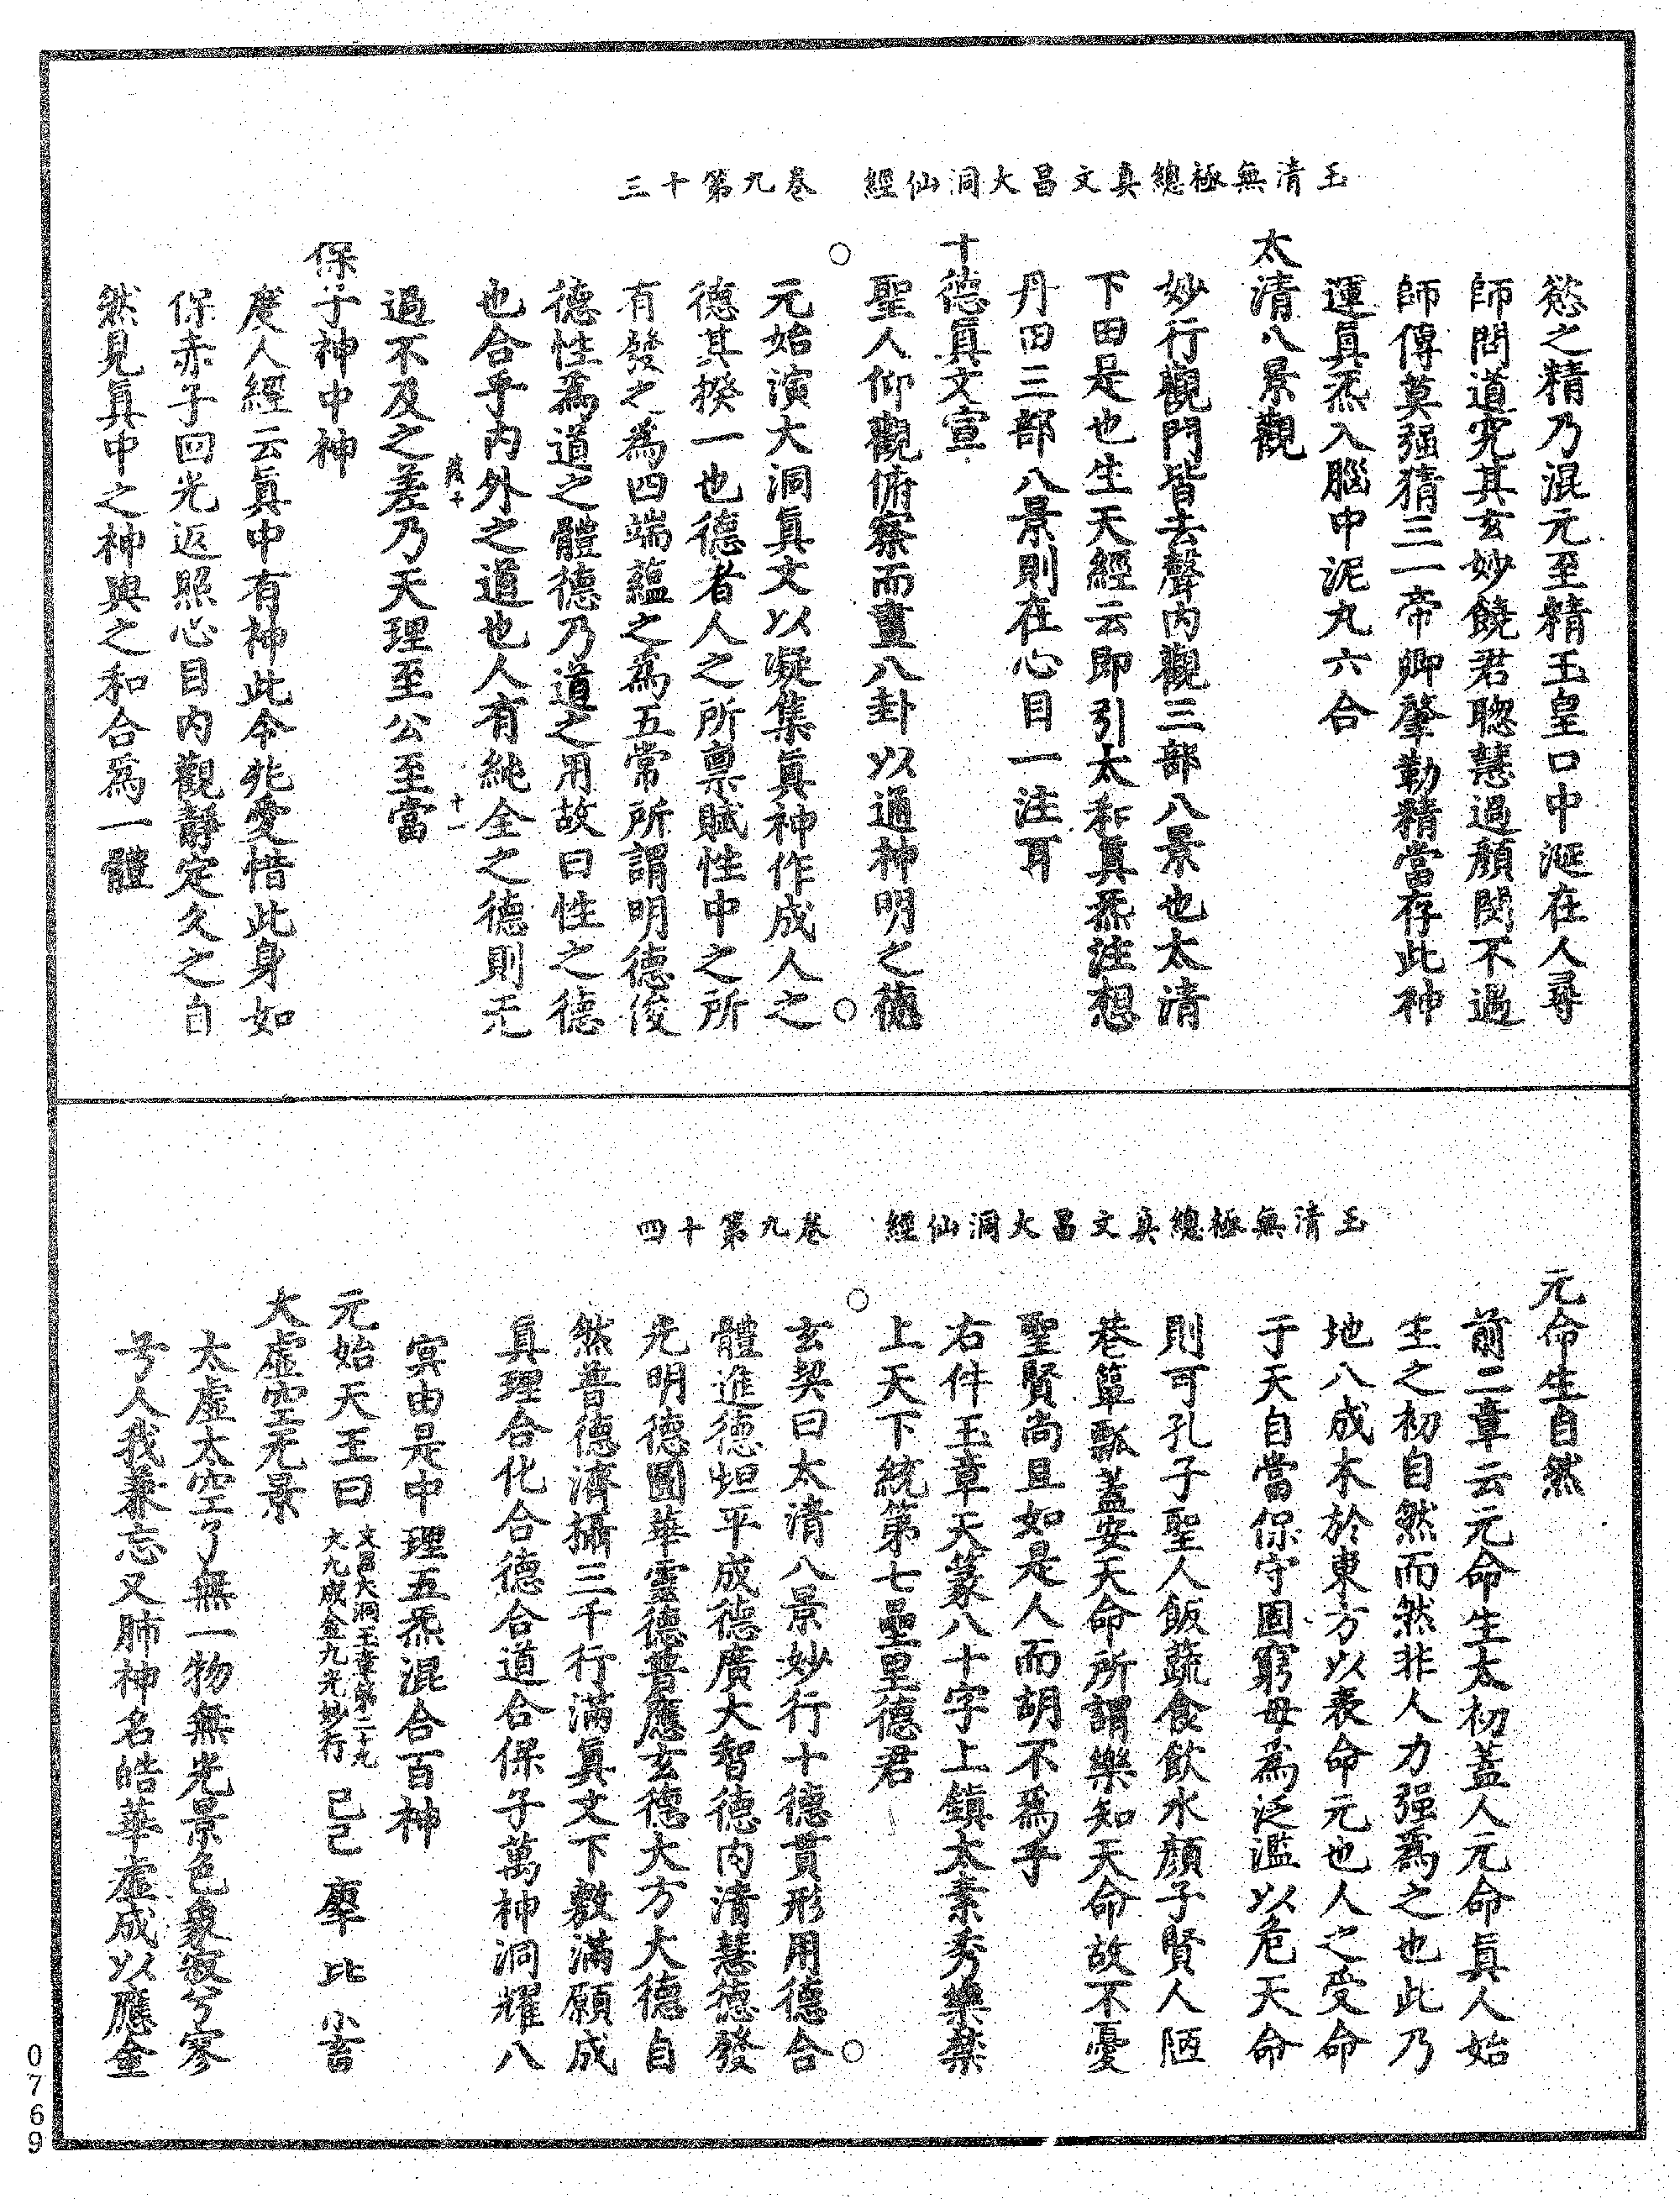 玉清無極總真文昌大洞仙經　卷九第十三
慾之精乃混元至精玉皇口中涎在人尋
師問道究其玄妙饒君聰慧過顏閔不遇
師傳莫强猜三一帝卿肇勒精當存此神
運眞炁入腦中泥丸六合
太清八景觀
妙行觀門皆去聲內觀三部八景也太清
下田是也生天經云即引太和眞炁注想
丹田三部八景則在心目一注耳
十德眞文宣
聖人仰觀俯察而畫八卦以通神明之德
元始演大洞眞文以凝集眞神作成人之
德其揆一也德者人之所禀賦性中之所
有發之為四端蘊之為五常所謂明德俊
德性為道之體德乃道之用故曰性之德
也合乎內外之道也人有純全之德則无
十一
過不及之差乃天理至公至當
保子神中神
度人經云眞中有神此令兆愛惜此身如
保赤子回光返照心目內觀靜定久之自
然見眞中之神與之和合爲一體
玉清無極總真文昌大洞仙經　卷九第十四
元命生自然
前二章云元命生太初蓋人元命眞人始
生之初自然而然非人力强爲之也此乃
地八成木於東方以表命元也人之受命
于天自當保守固窮毋為泛濫以危天命
則可孔子聖人飯蔬食飲水顏子賢人陋
巷簞瓢蓋安天命所謂樂知天命故不憂
聖賢尚且如是人而胡不爲乎
右件玉章天篆八十字上鎮太素秀樂禁
上天下統第七罡里德君
玄契曰太清八景妙行十德貫形用德合
體進德坦平成德廣大智德內清慧德發
光明德圓華靈德普應玄德大方大德自
然普德濟攝三千行滿眞文下敷滿願成
眞理合化合德合道合保子萬神洞耀八
冥由是中理五炁混合百神
元始天王曰
文昌大洞玉章第二十九
大九成金九光妙行
大虛空无景
太虛太空兮無一物無光景色象寂兮寥
兮人我兼忘又肺神名皓華虛成以應金
0769